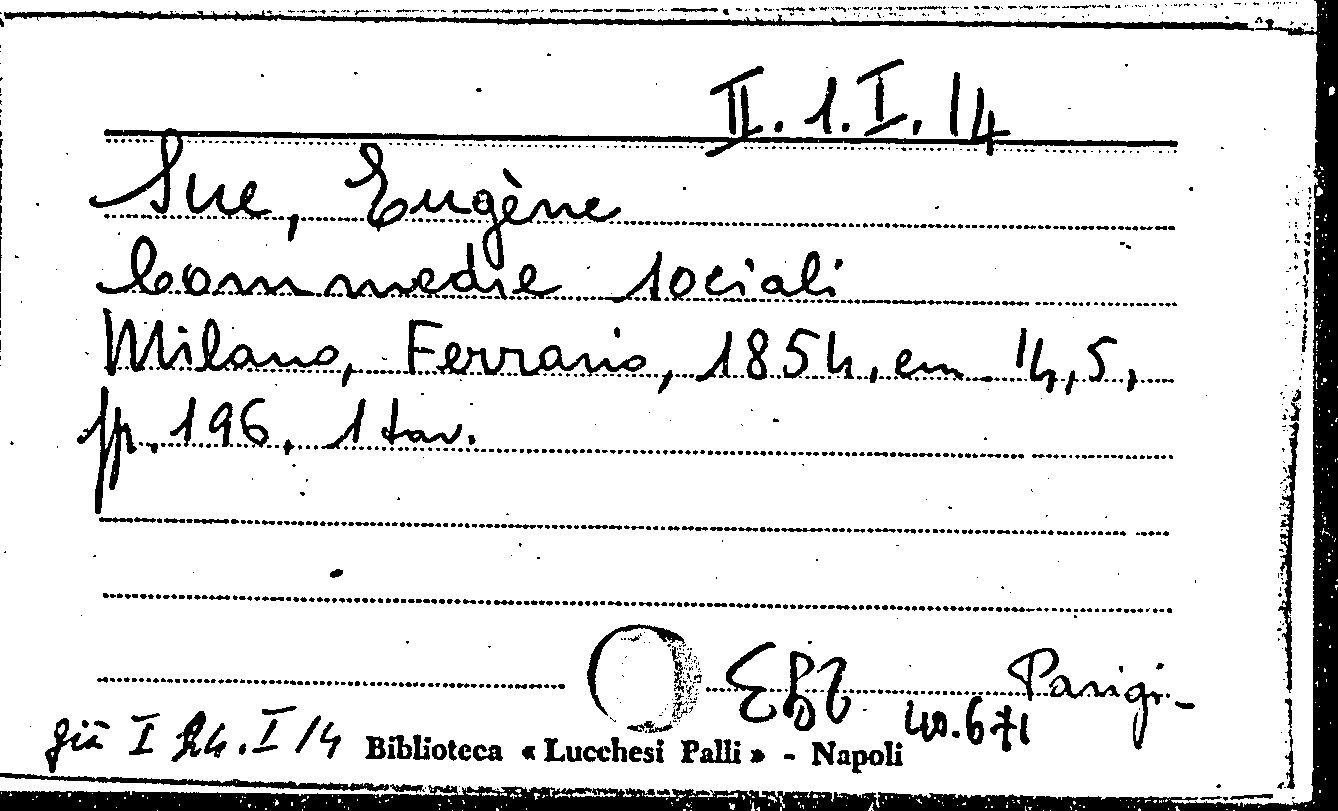 II. 1. I. 14
Sue, Eugène
Commedie sociali
Milano, Ferrario, 1854, cm. 14,5,
pp. 196, 1 tav.
Parigi-
40.671
già I 24. I 14 Biblioteca « Lucchesi Palli » - Napoli